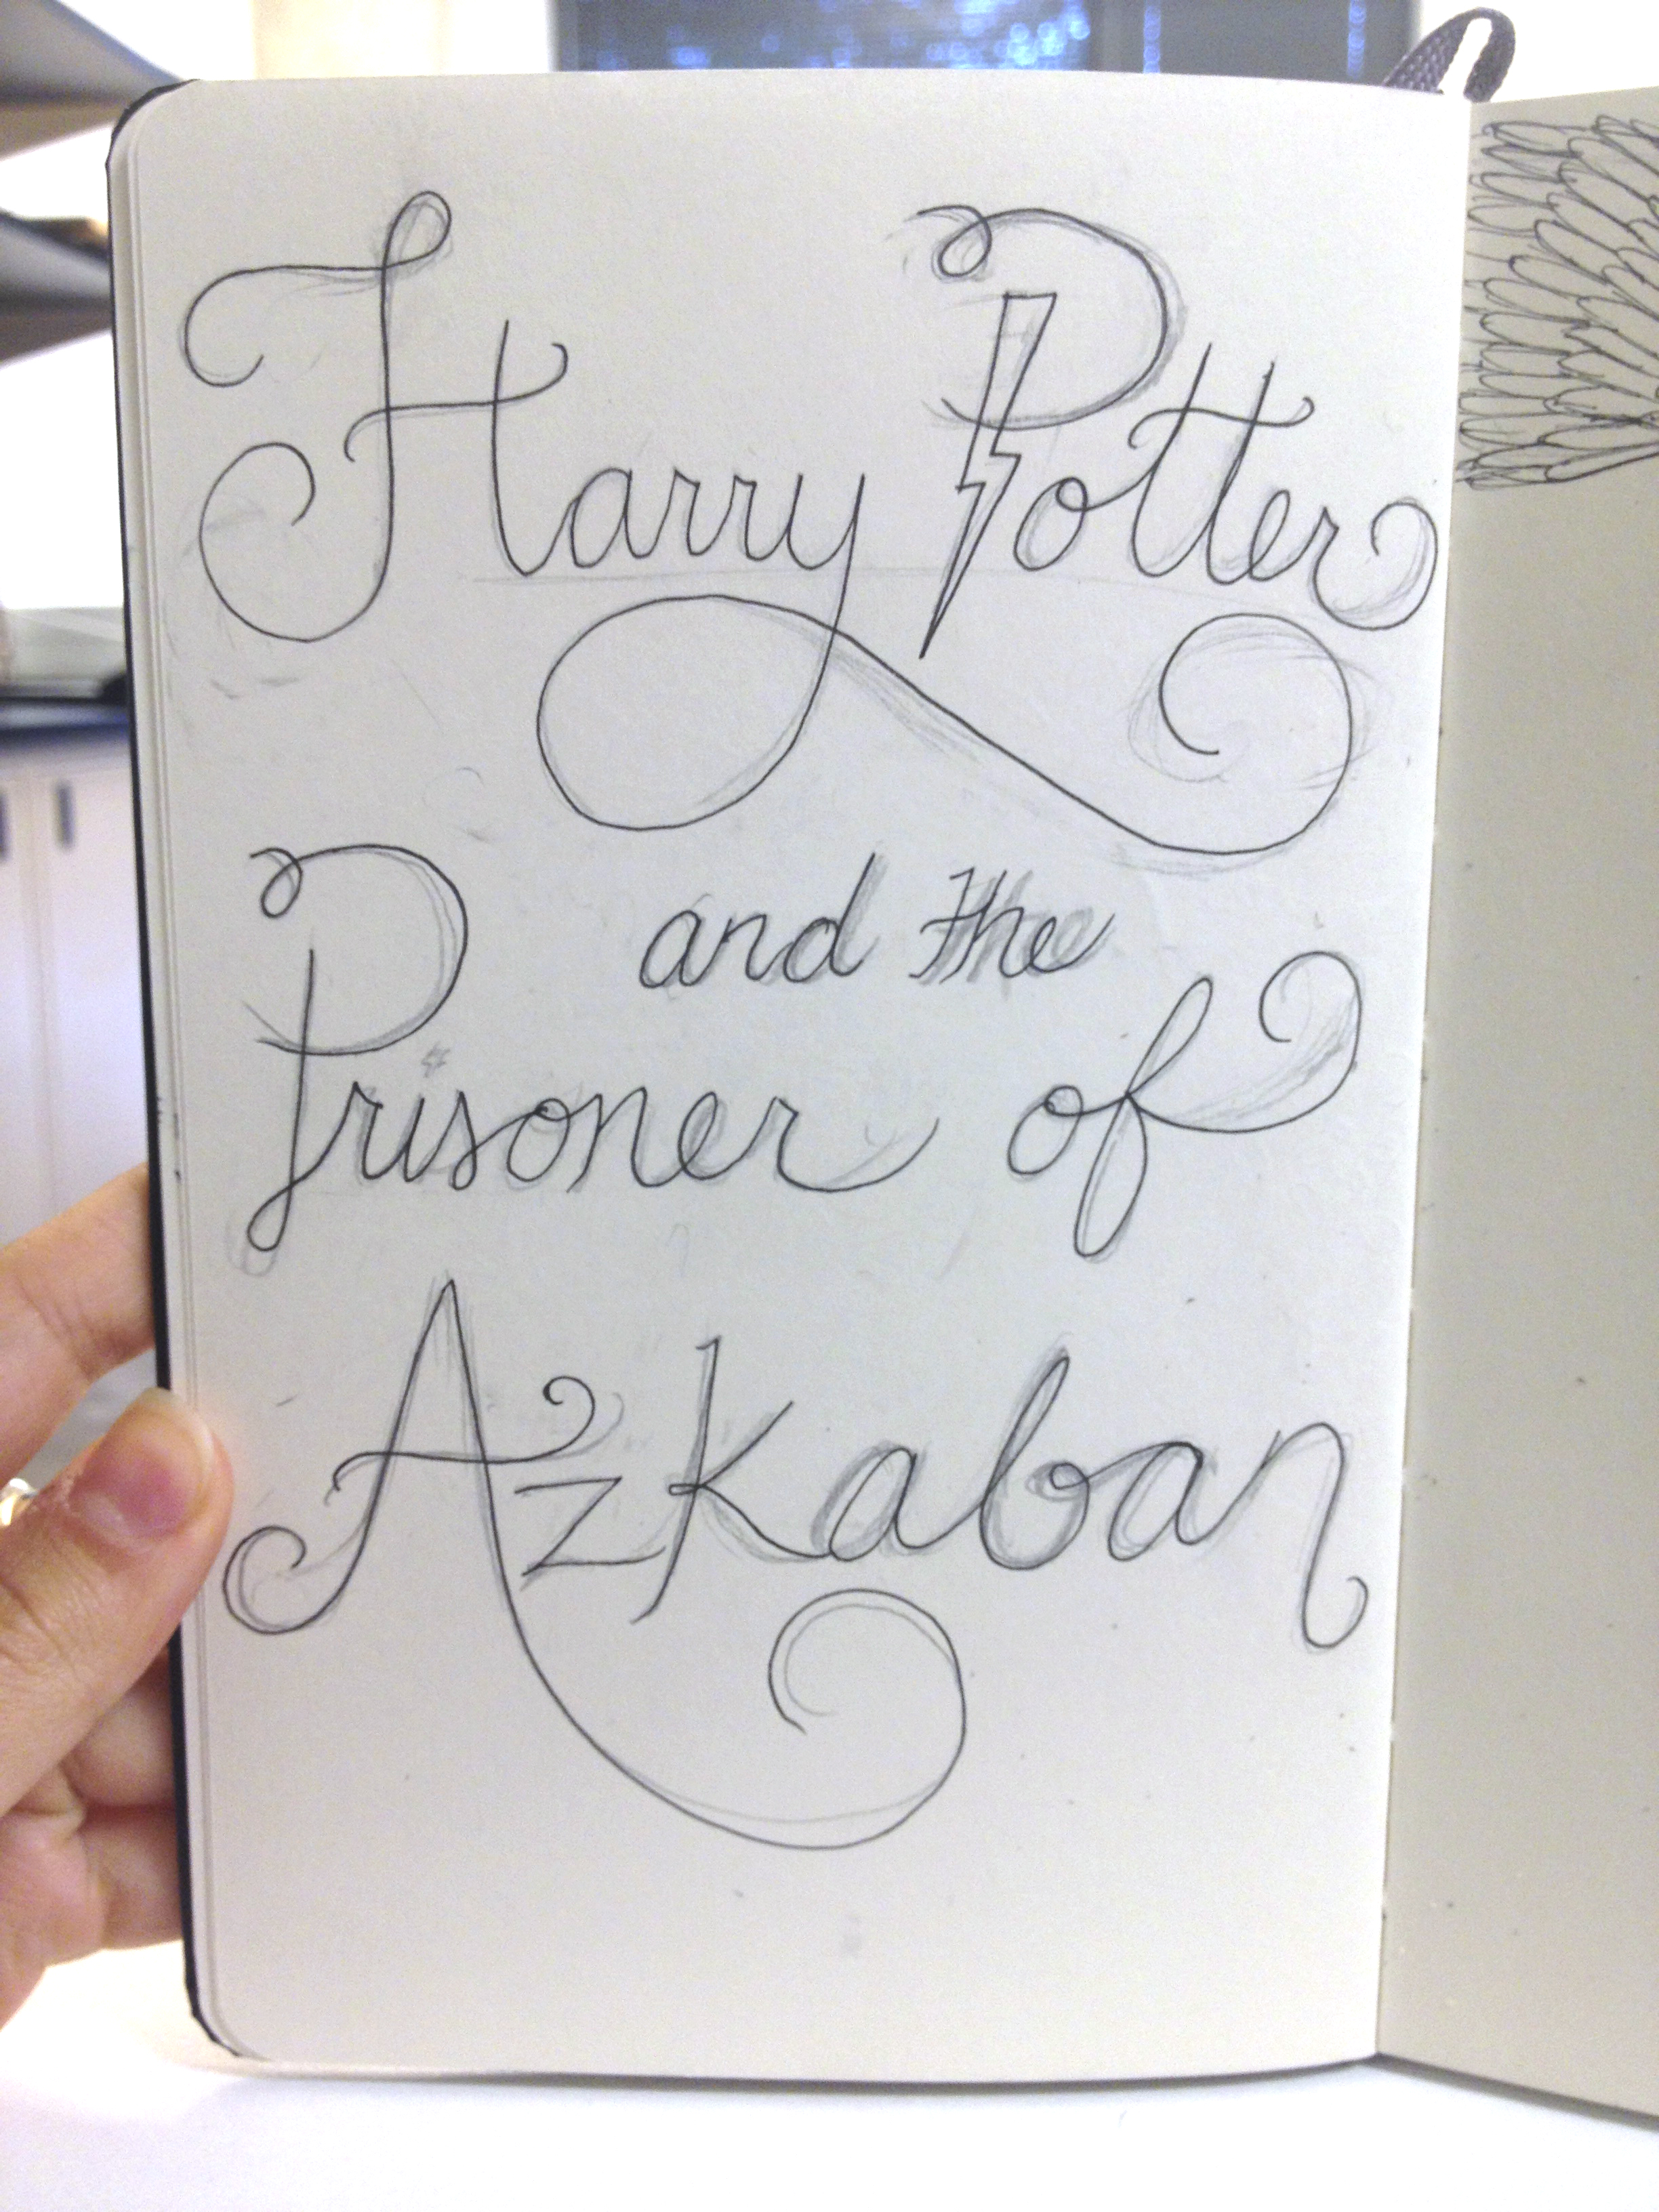 Harry Potter
and the
Prisoner of
Azkaban